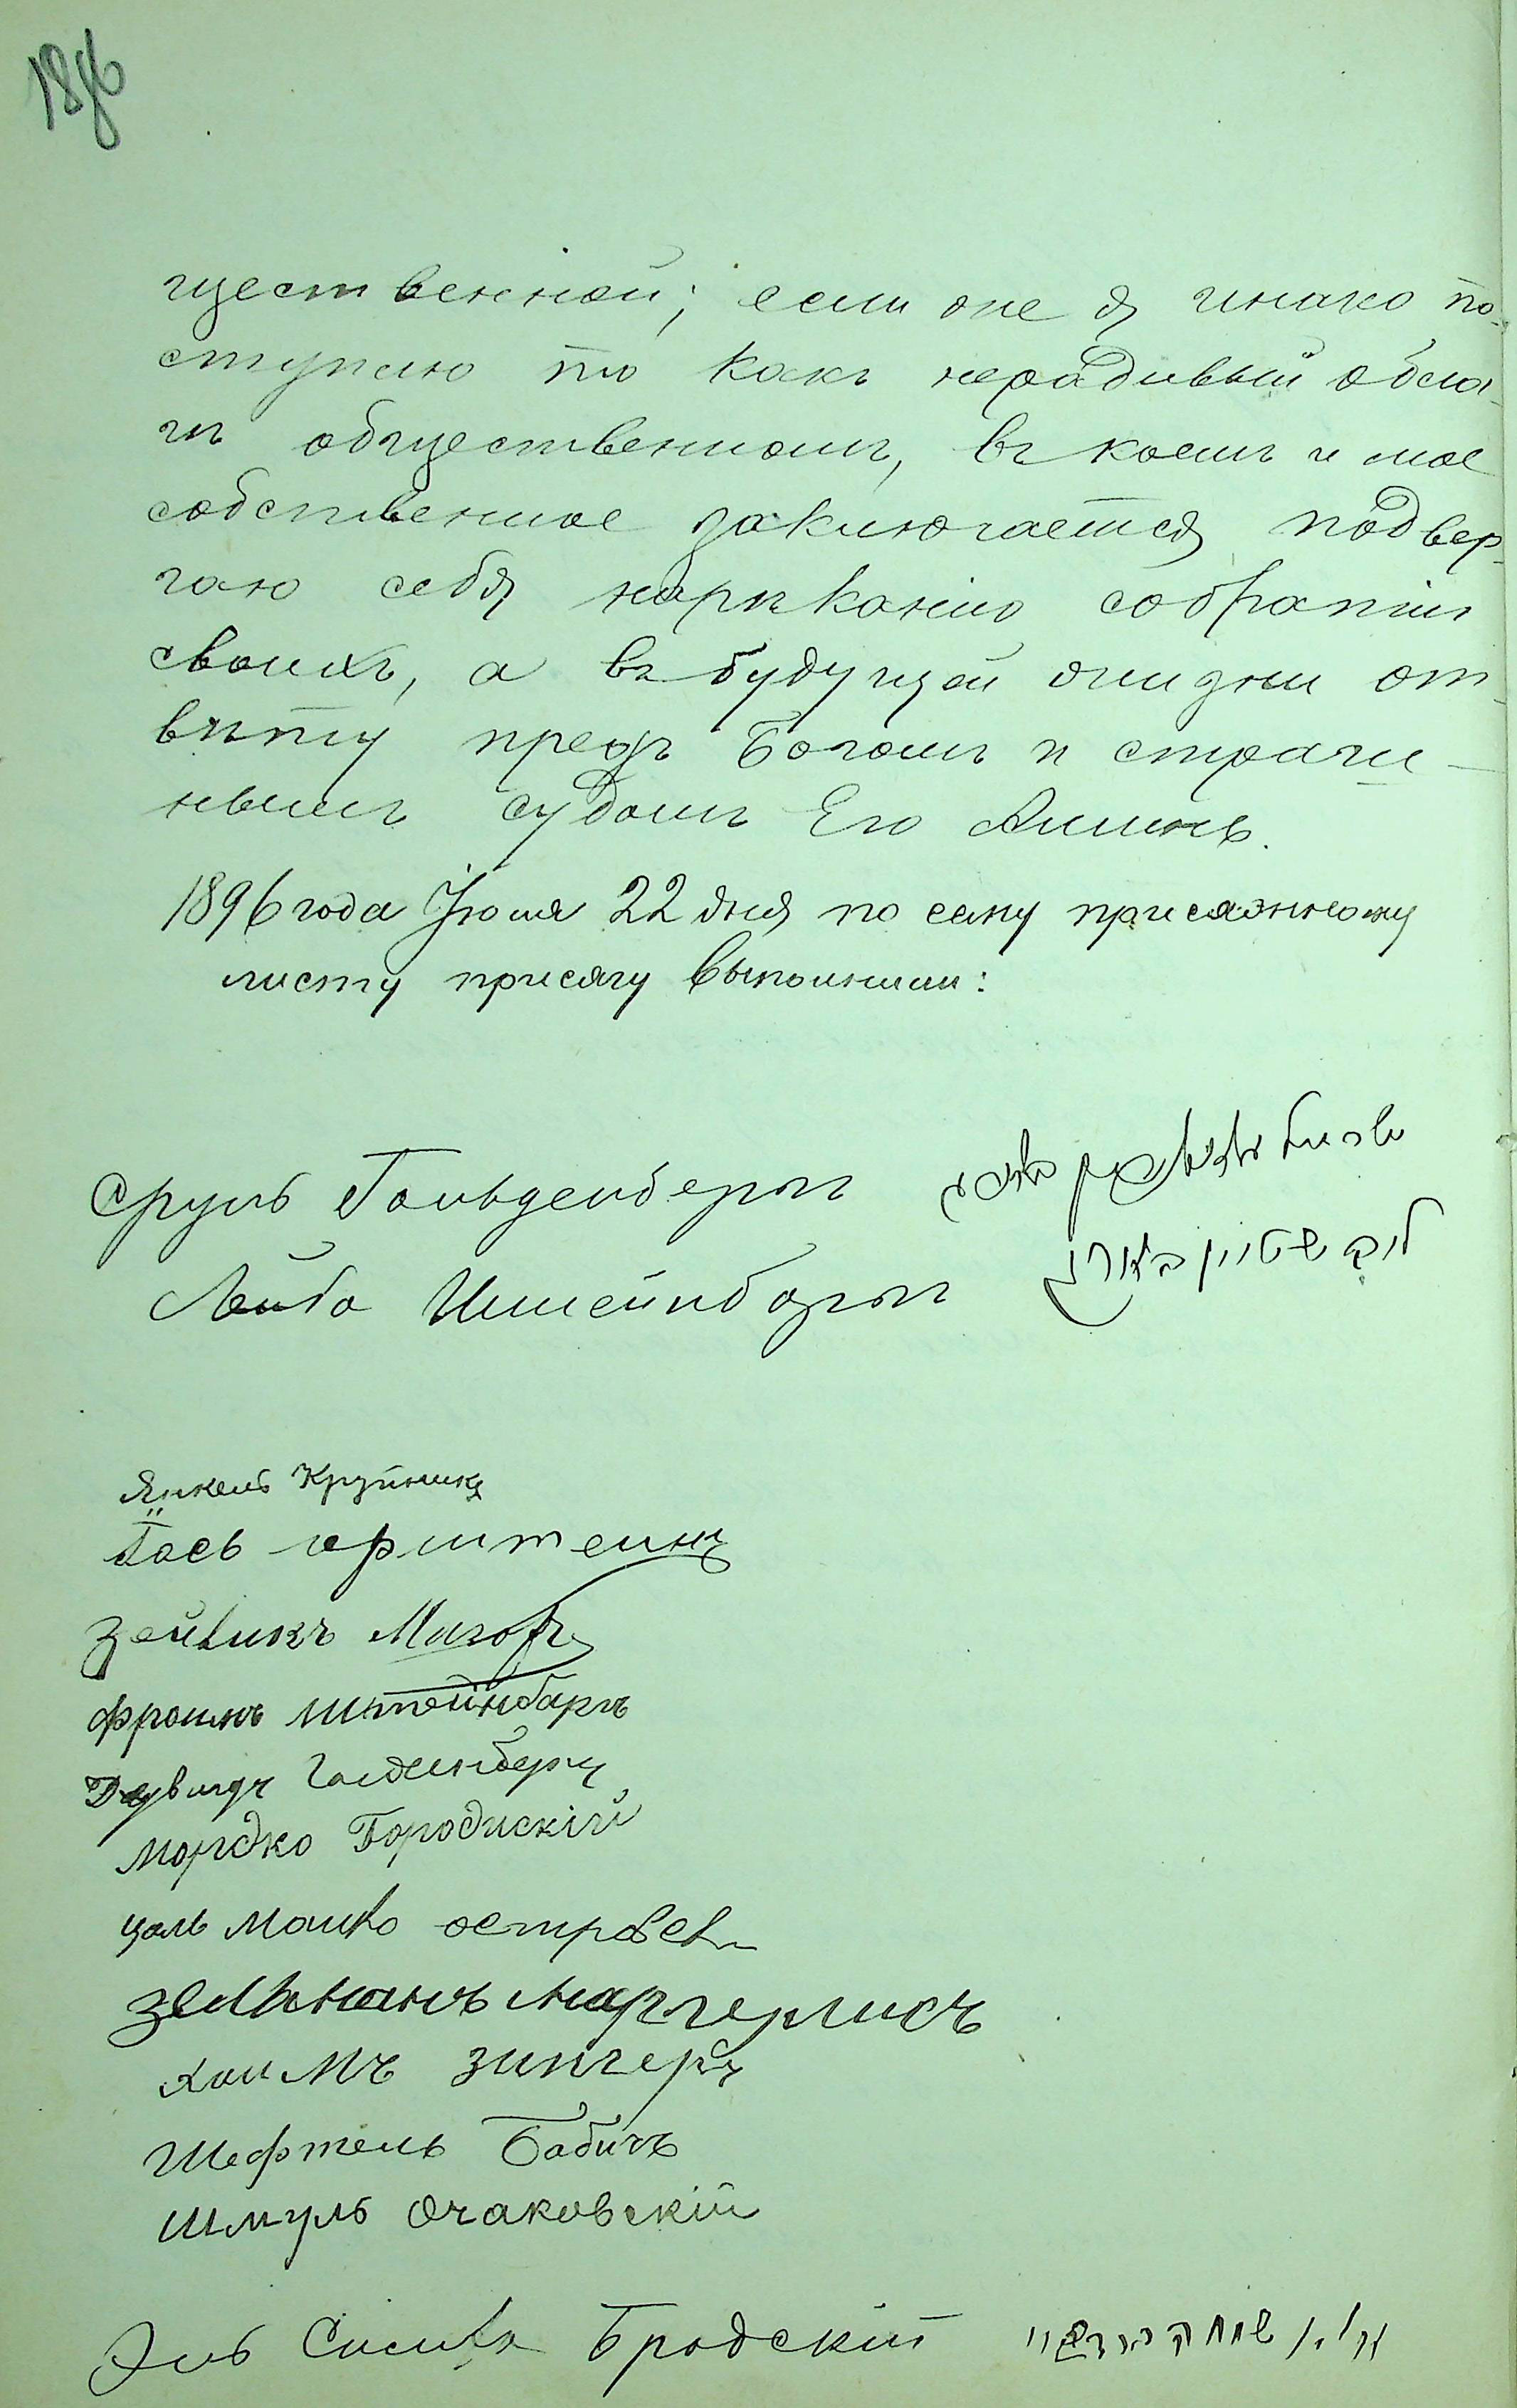 1896
щественной; если же я инако по-
ступлю то какъ нерадивый о бла-
гѣ общественномъ, въ коемъ и мое
собственное заключается, подвер-
гаю себя нарѣканію собратій
своихъ, а въ будущей жизни от-
вѣту предъ Богомъ и страш-
нымъ судомъ Его Аминь.
1896 года Іюля 22 дня по сему присяжному
листу присягу выполнили:
Сруль Гольденбергъ
Лейба Штейнбаргъ ליב שטיין בארג
Янкель Крупникъ
Іось
Зейликъ
Фроимъ Штейнбаргъ
Давидъ Голденбергъ
Мордко Бородискій
Цаль Мошко
Зельманъ Маргулисъ
Хаимъ Зингеръ
Шефтель Бабичъ
Шмуль Очаковскій
Эль Симха Бродскій